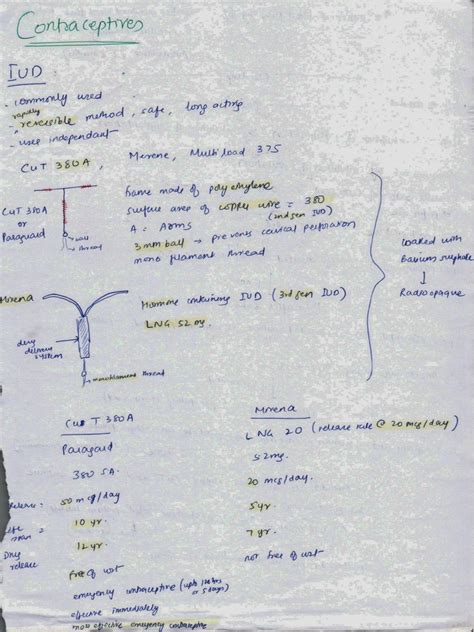 Contraceptives
IUD
- commonly used
rapidly
- reversible method, safe, long acting
- user independant
CuT 380A, Merene, Multiload 375
CuT 380A
or
Paraguard
ball
thread
frame made of polyethylene
surface area of copper wire = 380
(2nd gen IUD)
A = Arms
3mm ball → prevents cervical perforation
mono filament thread
coated with
Barium sulphate
↓
Radioopaque
Mirena
Hormone containing IUD (3rd gen IUD)
LNG 52 mg.
drug
delivery
system
monofilament thread
Cu T 380A
Mirena
Paragard
LNG 20 (release rate @ 20 mcg/day)
380 SA.
52mg.
Release = 50 mcg/day
20 mcg/day
life span = 10 yr.
5yr
Drug release
12 yr.
7 yr.
free of cost
not free of cost
emergency contraceptive (upto 120 hrs
or 5 days)
effective immediately
most effective emergency contraceptive